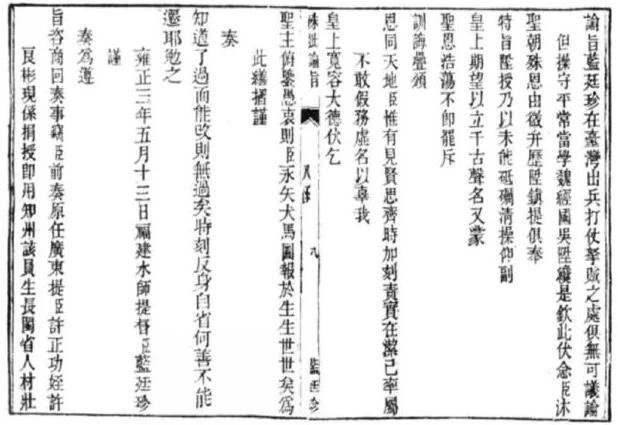 諭旨藍廷珍在臺灣出兵打仗拏賊之處俱無可議論
但操守平常當學魏經國吳陞纔是欽此伏念臣沐
聖朝殊恩由微弁歷陞鎮提俱奉
特旨陞授乃以未能砥礪清操仰副
皇上期望以立千古聲名又蒙
聖恩浩蕩不卽罷斥
訓誨疊頒
恩同天地臣惟有見賢思齊時加刻責實在潔己率屬
不敢假務虛名以辜我
皇上寬容大德伏乞
硃批諭旨 九 藍廷珍
聖主俯鑒愚衷則臣永矢犬馬圖報於生生世世矣爲
此繕摺謹
奏
知道了過而能改則無過矣時刻反身自省何善不能
遷耶勉之
雍正三年五月十三日福建水師提督臣藍廷珍
謹
奏爲遵
旨咨商回奏事竊臣前奏原任廣東提臣許正功姪許
良彬現係捐授卽用知州該員生長閩省人材壯